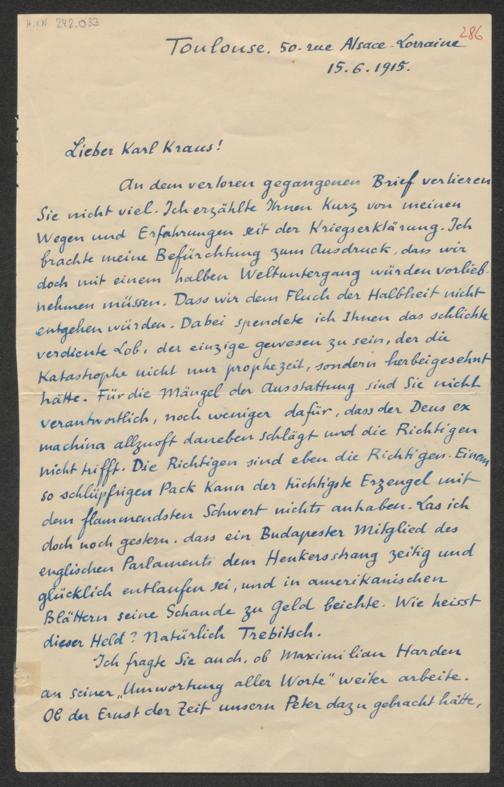 H.I.N. 242.033
286
Toulouse. 50. rue Alsace-Lorraine
15.6.1915.
Lieber Karl Kraus!
An dem verloren gegangenen Brief verlieren
Sie nicht viel. Ich erzählte Ihnen kurz von meinen
Wegen und Erfahrungen seit der Kriegserklärung. Ich
brachte meine Befürchtung zum Ausdruck, dass wir
doch mit einem halben Weltuntergang würden vorlieb-
nehmen müssen. Dass wir dem Fluch der Halbheit nicht
entgehen würden. Dabei spendete ich Ihnen das schlichte
verdiente Lob, der einzige gewesen zu sein, der die
Katastrophe nicht nur prophezeit, sondern herbeigesehnt
hätte. Für die Mängel der Ausstattung sind Sie nicht
verantwortlich, noch weniger dafür, dass der Deus ex
machina allzuoft daneben schlägt und die Richtigen
nicht trifft. Die Richtigen sind eben die Richtigen. Einem
so schlüpfrigen Pack kann der tüchtigste Erzengel mit
dem flammendsten Schwert nichts anhaben. Las ich
doch noch gestern, dass ein Budapester Mitglied des
englischen Parlaments dem Henkersstrang zeitig und
glücklich entlaufen sei, und in amerikanischen
Blättern seine Schande zu Geld beichte. Wie heisst
dieser Held? Natürlich Trebitsch.
Ich fragte Sie auch, ob Maximilian Harden
an seiner „Umwortung aller Worte" weiter arbeite.
Ob der Ernst der Zeit unsern Peter dazu gebracht hätte,